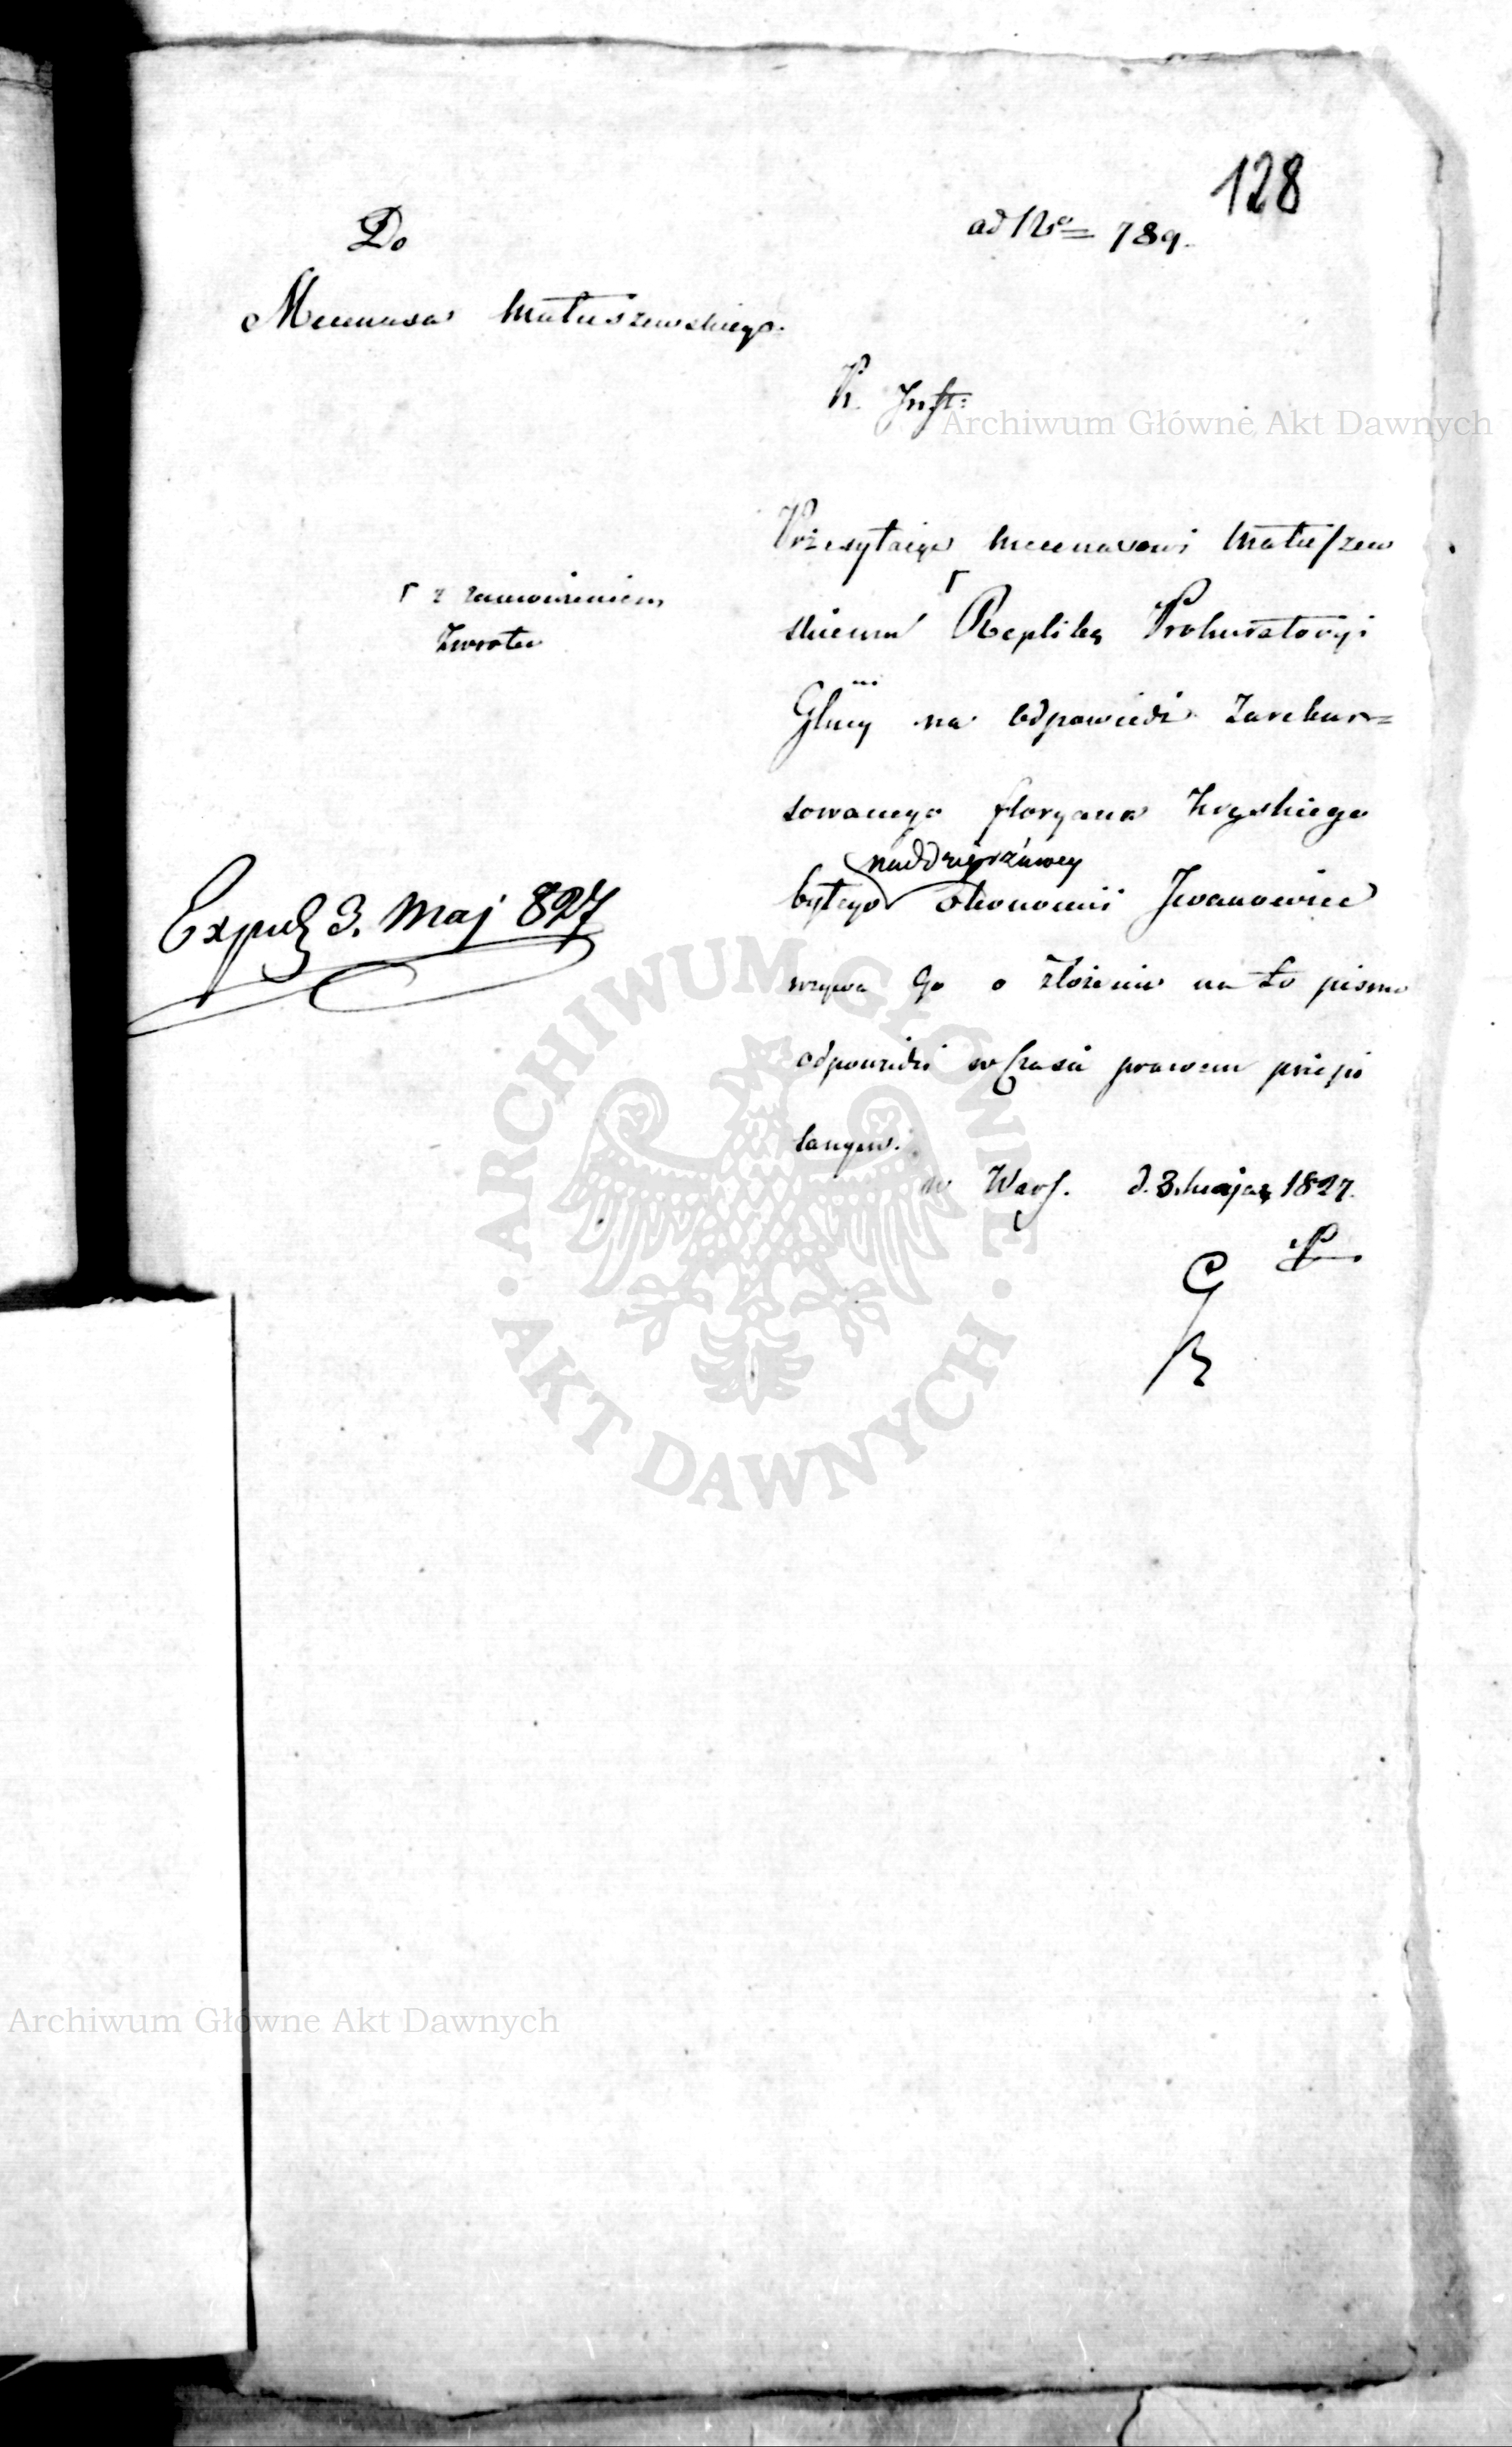 128
ad Nro 789.
Do
Mecenasa Matuszewskiego.
K. Inst:
Przesyłaiąc Mecenasowi Matuszew
skiemu ┌ Replikę Prokuratoryi
┌ z zamówieniem
Zwrotu
Glney na odpowiedź Zarekur=
sowanego Floryana Zwyskiego
naddzierżawcy
byłego Ekonomii Jwanowice
wzywa Go o złożenie na to pismo
odpowiedzi w Czasie prawem przepi
sanym.
Exped 3. Maj 827
w Wars. d. 3. Maja 1827.
Archiwum Główne Akt Dawnych
ARCHIWUM GŁÓWNE AKT DAWNYCH
Archiwum Główne Akt Dawnych